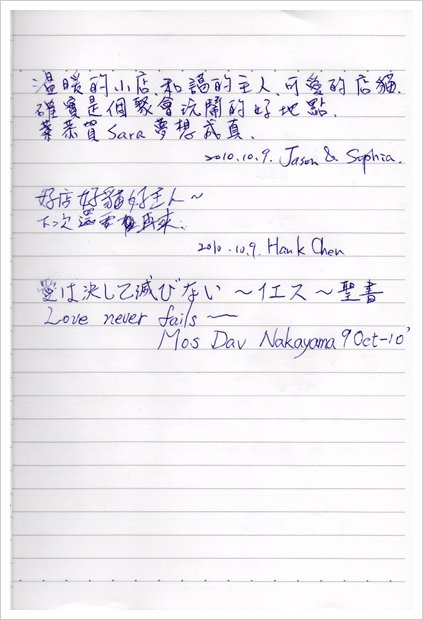 溫暖的小店、和諧的主人、可愛的店貓、
確實是個聚會洗鬧的好地點、
恭賀Sara夢想成真、
2010.10.9. Jason & Sophia.
好店好貓好主人～
下次還要再來.
2010.10.9. Hank Chen
愛は決して滅びない～イエス～聖書
Love never fails～
Mos Dav Nakayama 9 Oct-10'